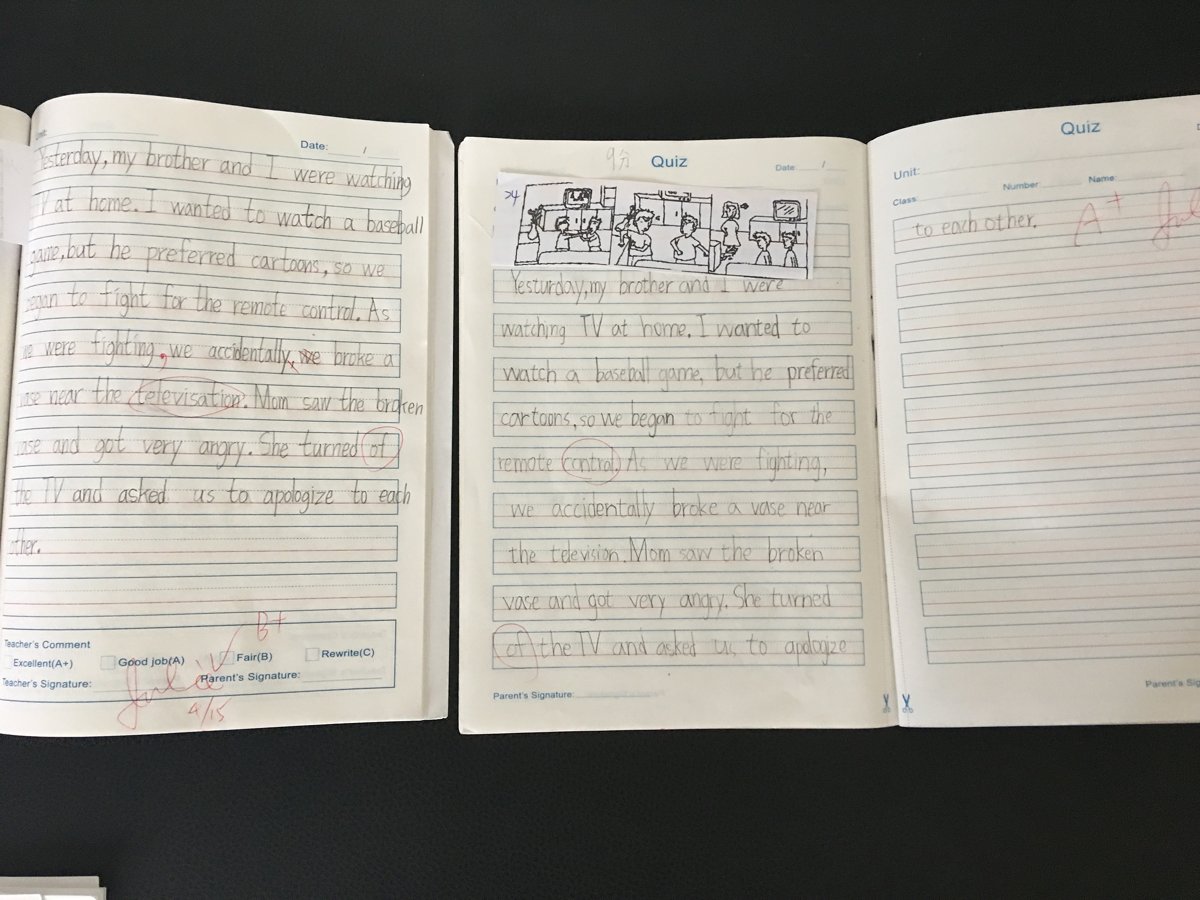 Date: /
Yesterday, my brother and I were watching
TV at home. I wanted to watch a baseball
game, but he preferred cartoons, so we
began to fight for the remote control. As
we were fighting, we accidentally, we broke a
vase near the televisation. Mom saw the broken
vase and got very angry. She turned of
the TV and asked us to apologize to each
other.
Teacher's Comment
B+
Excellent(A+) Good job(A) Fair(B) Rewrite(C)
Teacher's Signature: Parent's Signature:
4/15
9分 Quiz Date: /
Yesturday, my brother and I were
watching TV at home. I wanted to
watch a baseball game, but he preferred
cartoons, so we began to fight for the
remote control. As we were fighting,
we accidentally broke a vase near
the television. Mom saw the broken
vase and got very angry. She turned
of the TV and asked us to apologize
Parent's Signature:
Quiz
Unit:
Class: Number: Name:
to each other. A+
Parent's Sig